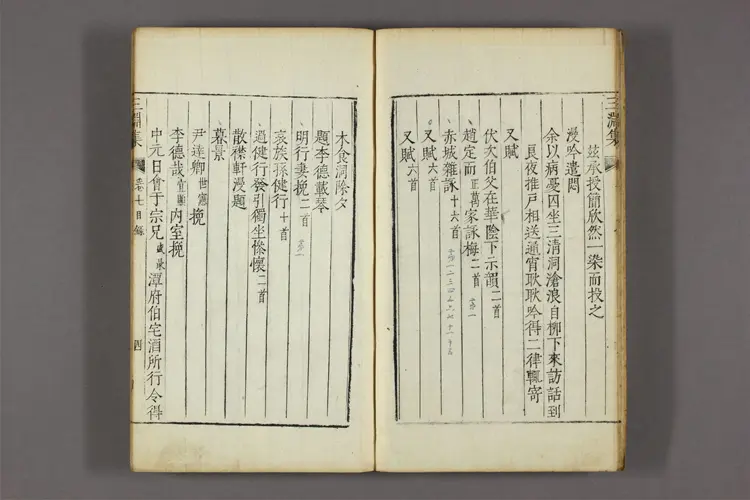 三淵集
茲承投簡欣然一染而投之
漫吟遣悶
余以病憂囚坐三清洞滄浪自柳下來訪話到
艮夜推戶相送通宵耿耿吟得二律輒寄
又賦
伏次伯父在華陰下示韻二首
趙定而正萬家詠梅二首
赤城雜詠十六首
又賦六首
又賦六首
木食洞除夕
題李德載琴
明行妻挽二首
亥族孫健行十首
過健行發引獨坐慘懷二首
散襟軒漫題
暮景
尹逹卿世憲挽
李德哉宜顯内室挽
中元日會于宗兄盛最潭府伯宅酒所行令得
三淵集
卷七目錄
四